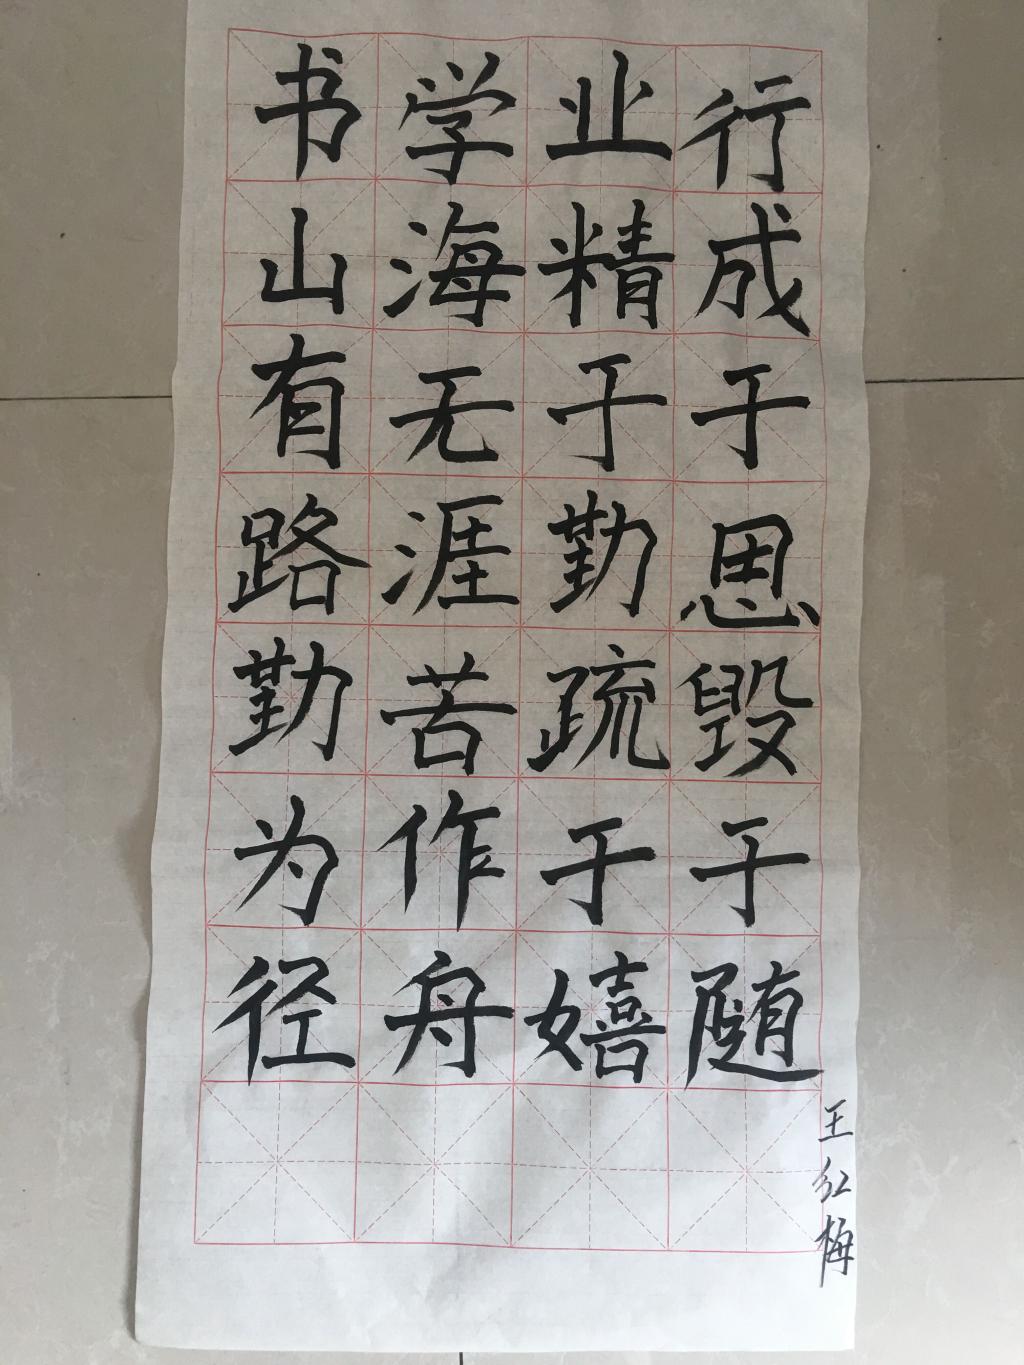 书山有路勤为径
学海无涯苦作舟
业精于勤疏于嬉
行成于恩毁于随
王红梅